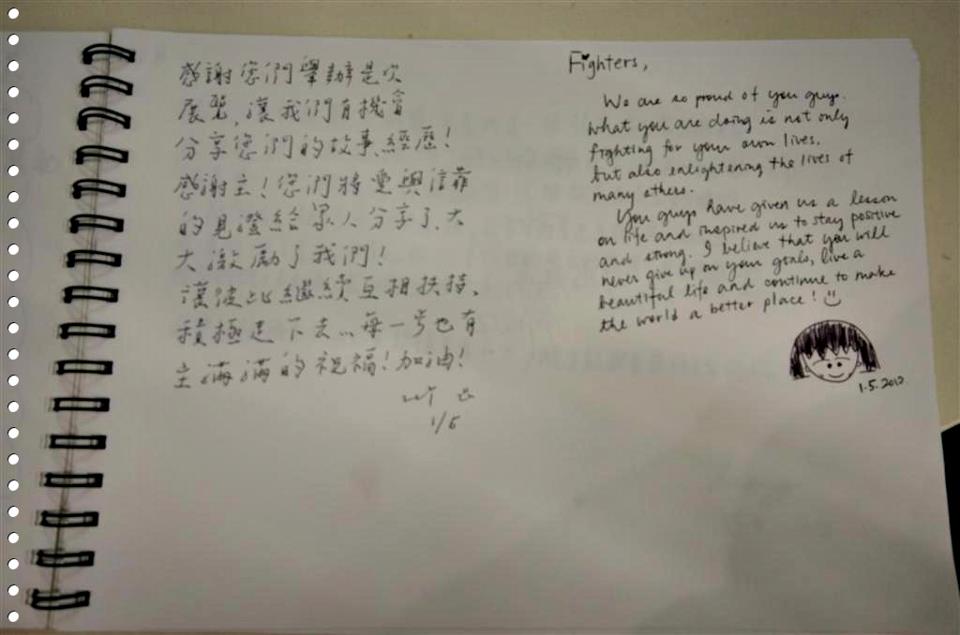 感謝您們舉辦是次
展覽,讓我們有機會
分享您們的故事、經歷!
感謝主!您們將愛與信靠
的見證給眾人分享了,大
大激勵了我們!
讓彼此繼續互相扶持、
積極走下去...每一步也有
主滿滿的祝福!加油!
1/5
Fighters,
We are so proud of you guys.
What you are doing is not only
fighting for your own lives,
but also enlightening the lives of
many others.
You guys have given us a lesson
on life and inspired us to stay positive
and strong. I believe that you will
never give up on your goals, live a
beautiful life and continue to make
the world a better place!
1.5.2012